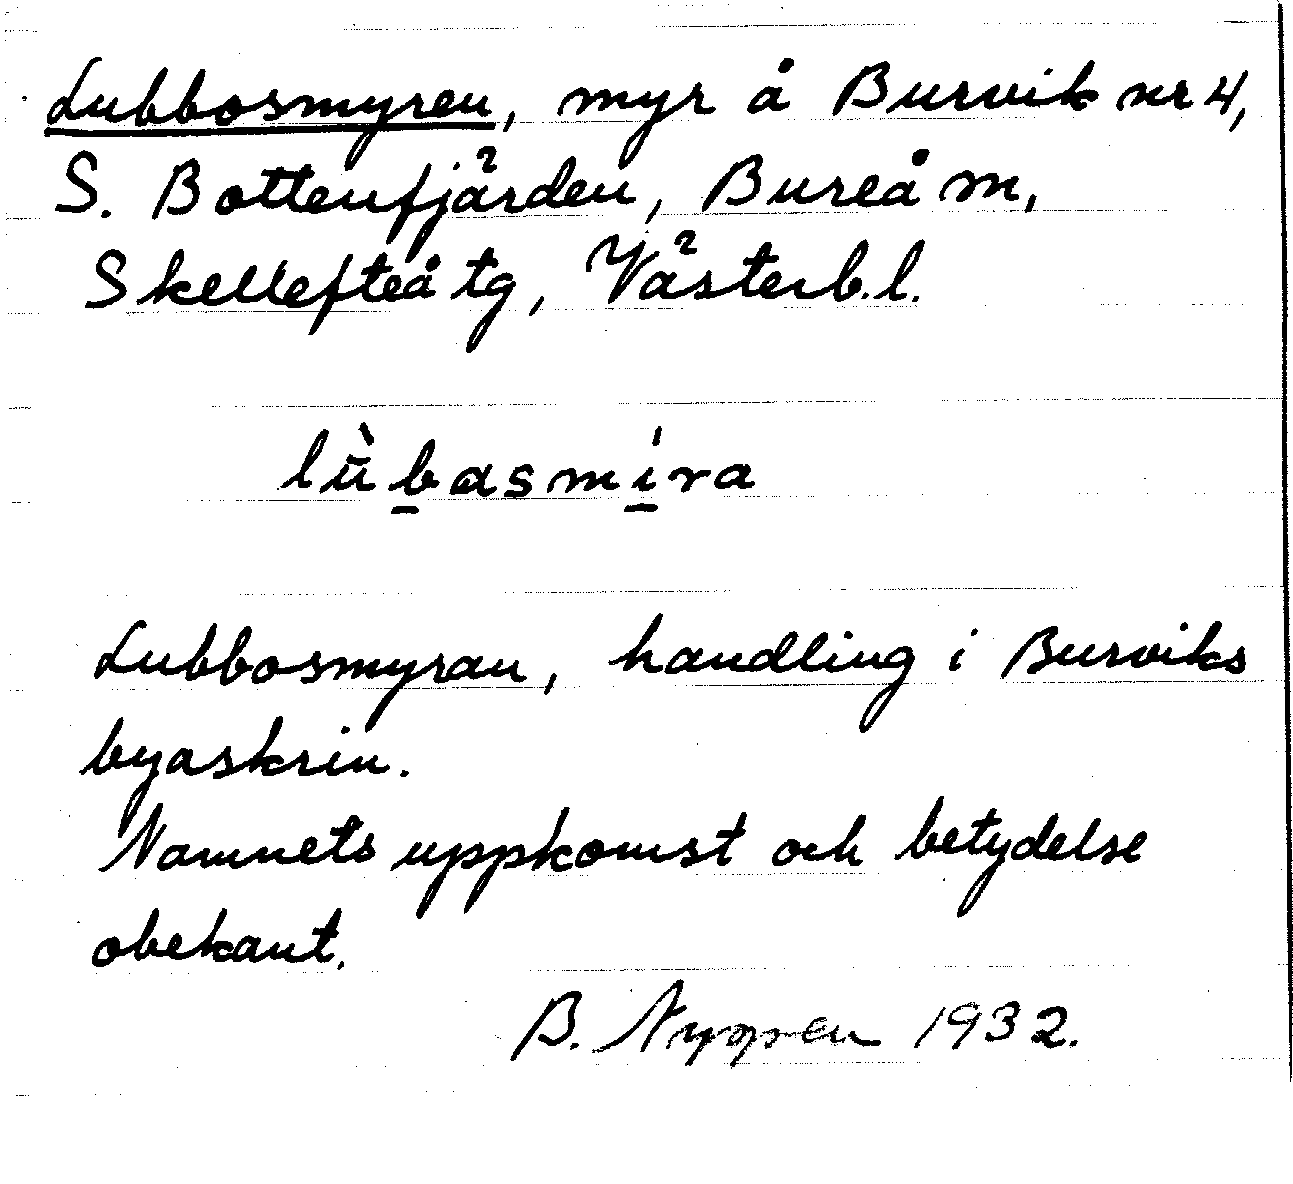 Lubbosmyren, myr å Burvik nr 4,
S. Bottenfjärden, Bureå m,
Skellefteå tg, Västerb. l.
lùbasmíra
Lubbosmyran, handling i Burviks
byaskrin.
Namnets uppkomst och betydelse
obekant.
B. Nygren 1932.